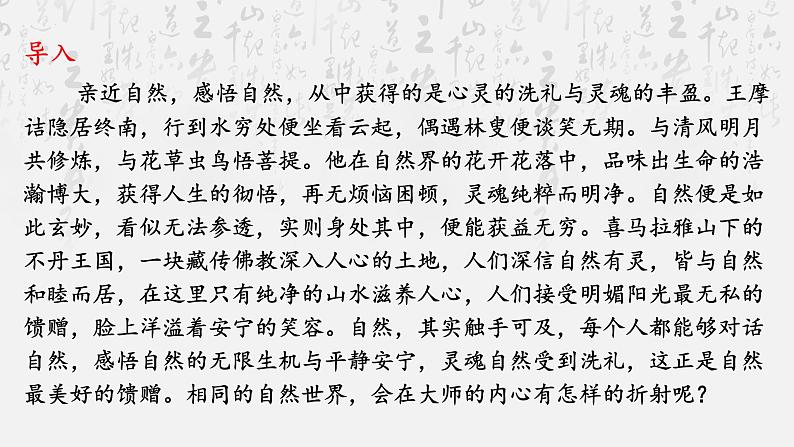 导入
亲近自然，感悟自然，从中获得的是心灵的洗礼与灵魂的丰盈。王摩
诘隐居终南，行到水穷处便坐看云起，偶遇林叟便谈笑无期。与清风明月
共修炼，与花草虫鸟悟菩提。他在自然界的花开花落中，品味出生命的浩
瀚博大，获得人生的彻悟，再无烦恼困顿，灵魂纯粹而明净。自然便是如
此玄妙，看似无法参透，实则身处其中，便能获益无穷。喜马拉雅山下的
不丹王国，一块藏传佛教深入人心的土地，人们深信自然有灵，皆与自然
和睦而居，在这里只有纯净的山水滋养人心，人们接受明媚阳光最无私的
馈赠，脸上洋溢着安宁的笑容。自然，其实触手可及，每个人都能够对话
自然，感悟自然的无限生机与平静安宁，灵魂自然受到洗礼，这正是自然
最美好的馈赠。相同的自然世界，会在大师的内心有怎样的折射呢？